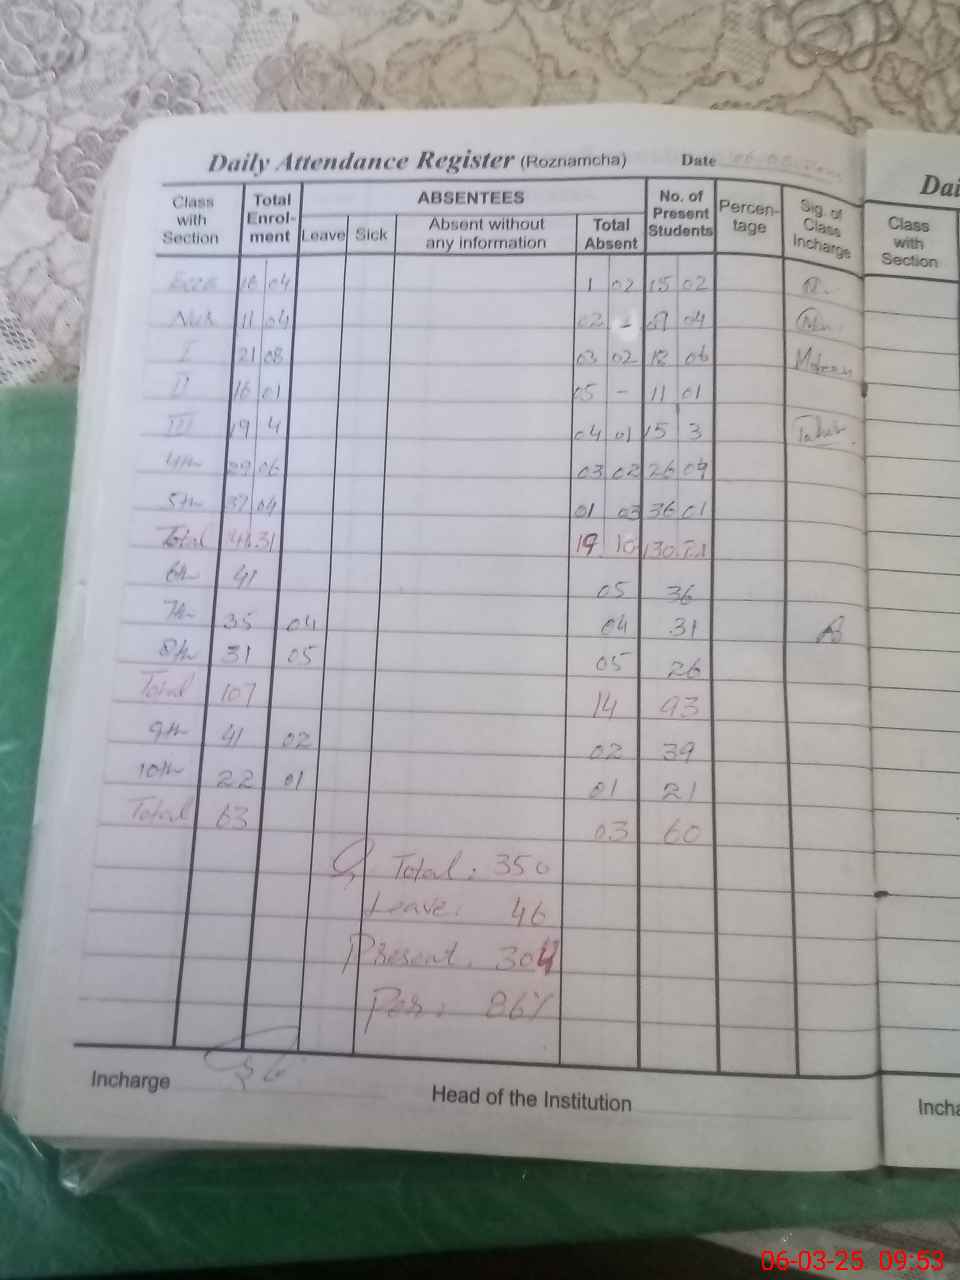 Daily Attendance Register (Roznamcha) Date
Dai
Class with Section Total Enrol-ment ABSENTEES No. of Present Students Percen-tage Sig. of Class Incharge
Leave Sick Absent without any information Total Absent
Class with Section
16 04 1 02 15 02
11 04 02 - 09 04
I 21 08 03 02 18 06
II 16 01 05 - 11 01
III 19 4 04 01 15 3
4th 29 06 03 02 26 04
5th 37 04 01 03 36 01
Total 31 19 10 130
6th 41 05 36
7th 35 04 04 31
8th 31 05 05 26
Total 107 14 93
9th 41 02 02 39
10th 22 01 01 21
Total 63 03 60
Total: 350
Leave: 46
Present: 304
Per: 86%
Incharge
Head of the Institution
Incha
06-03-25 09:53